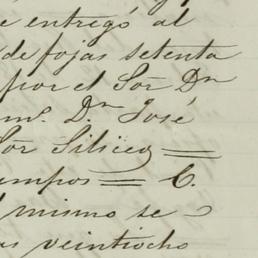 e entregó al
de fojas setenta
por el Sor Dn
mo. Dn José
or Siliceo =
empos = C.
l mismo se
as veintiocho